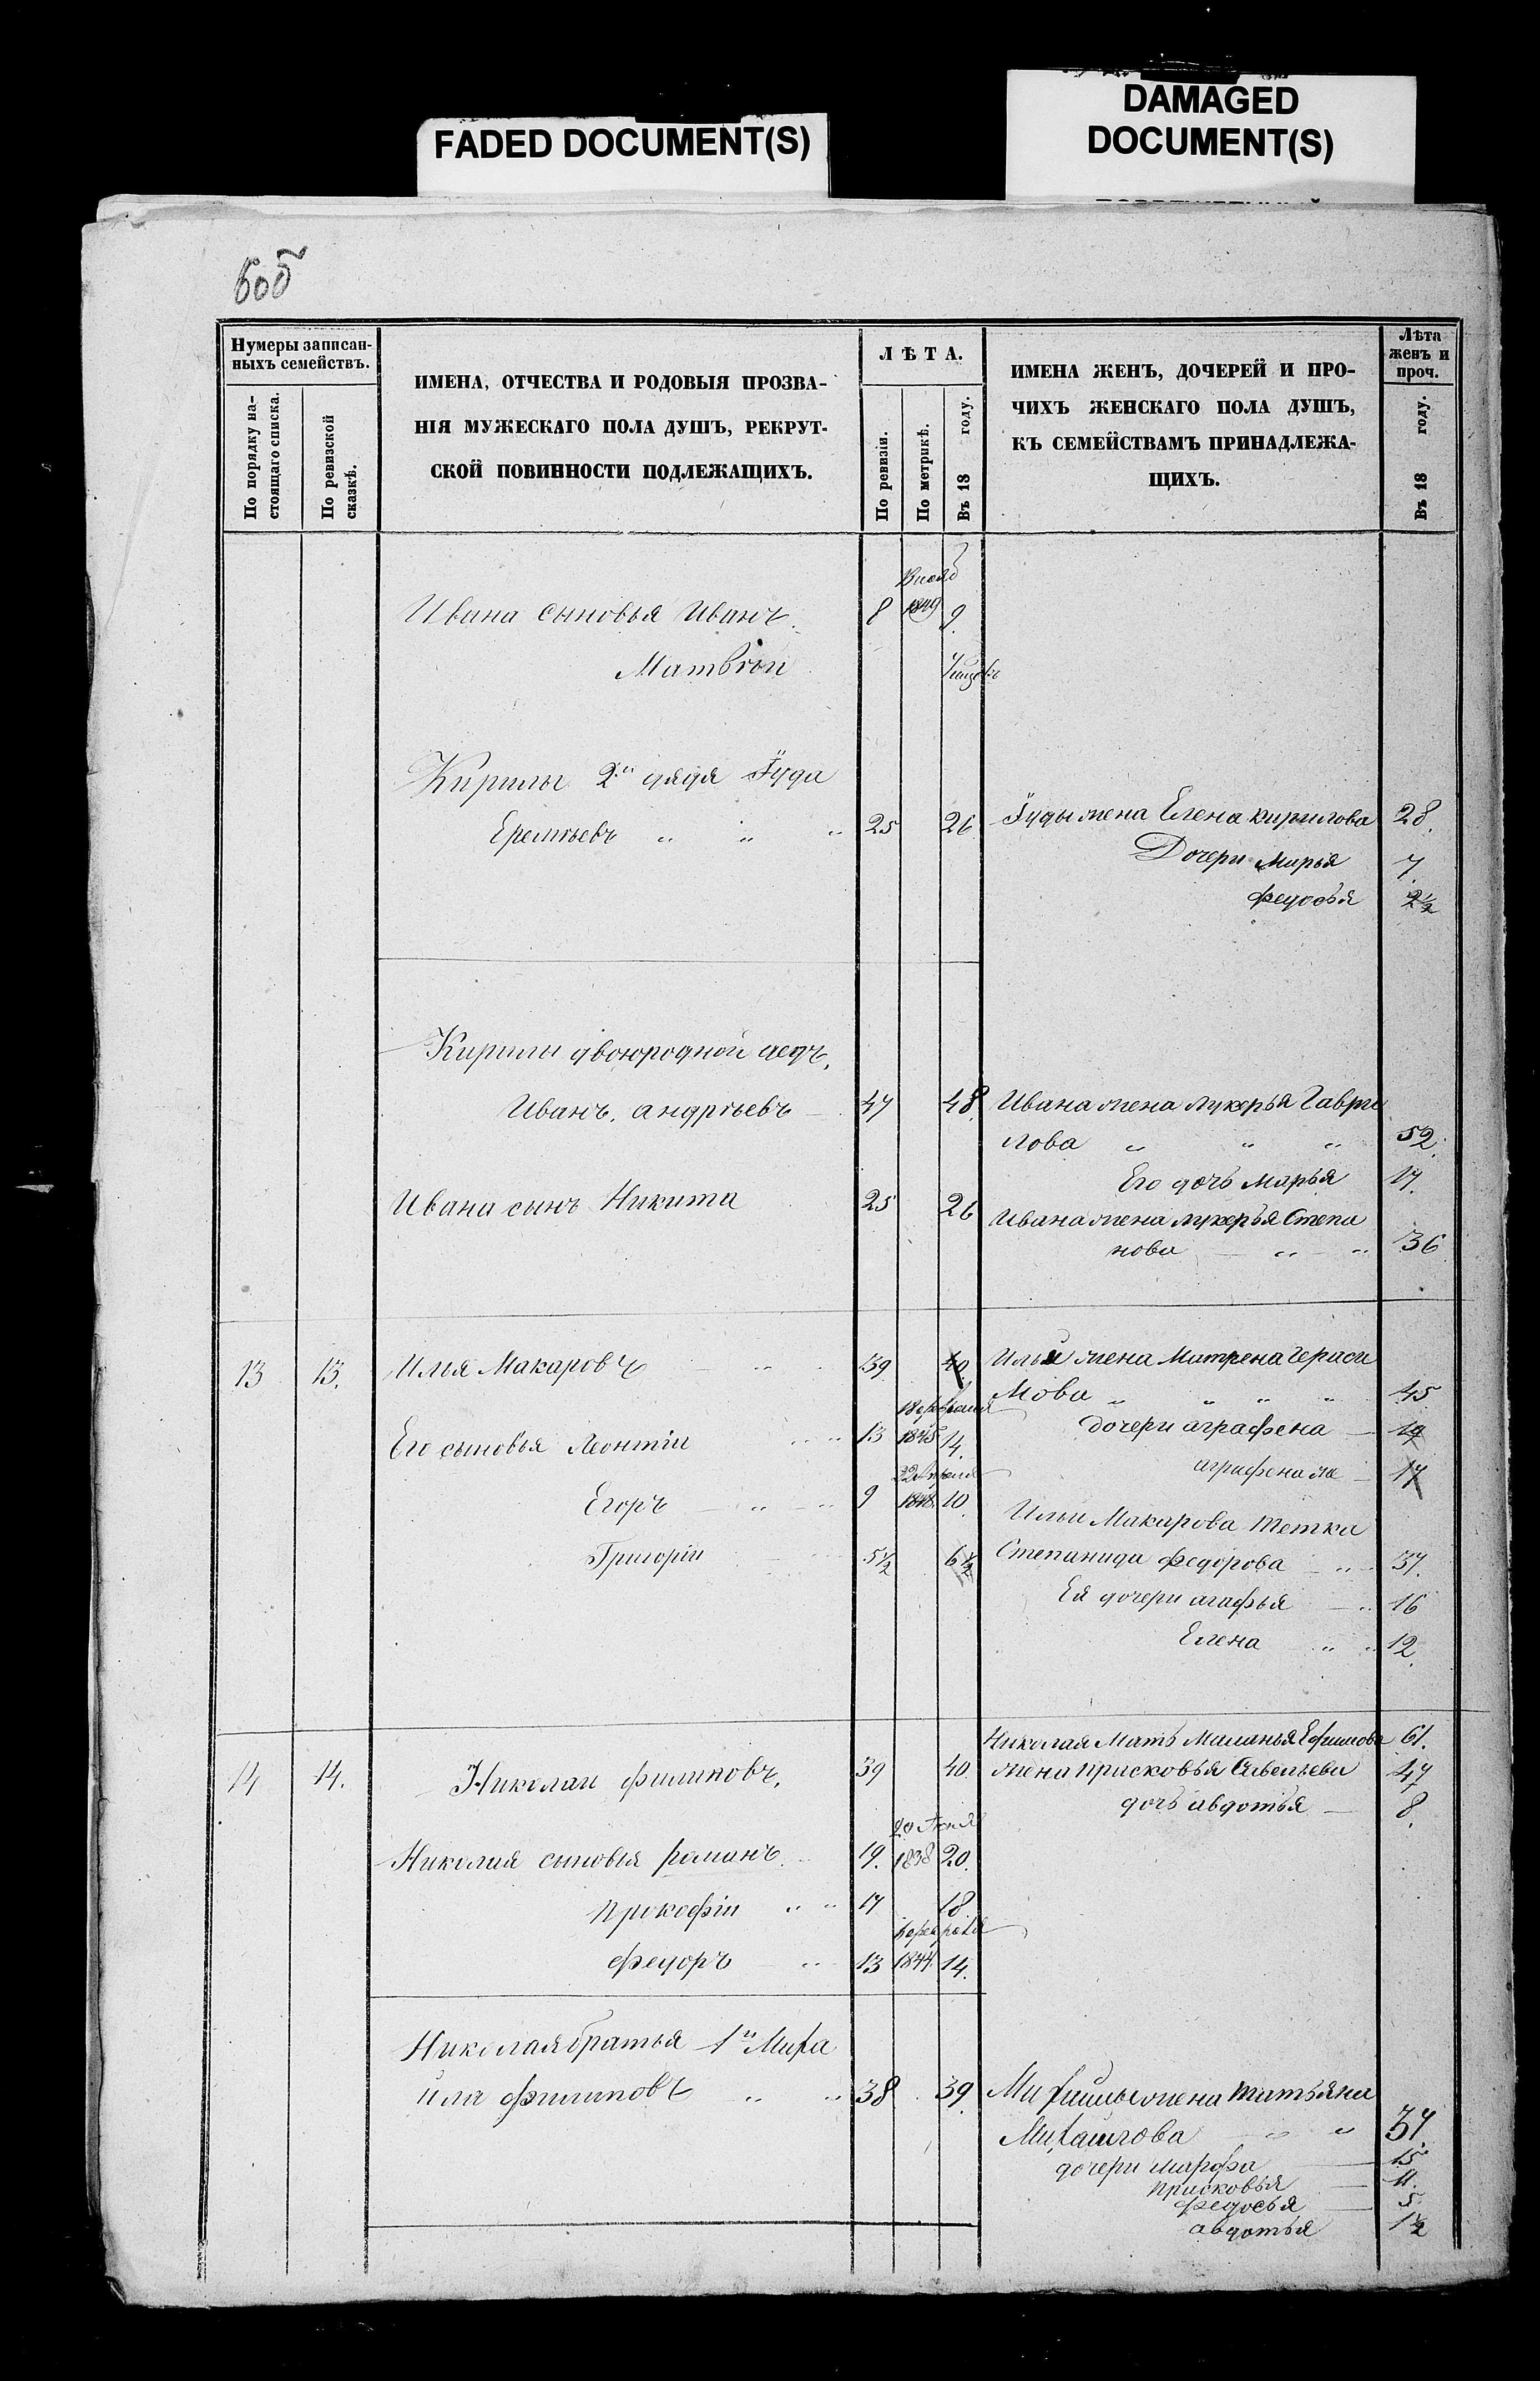 FADED DOCUMENT(S)
DAMAGED
DOCUMENT(S)
Нумеры записан-
ныхъ семействъ.
По порядку на-
стоящаго списка.
По ревизской
сказкѣ.
ИМЕНА, ОТЧЕСТВА И РОДОВЫЯ ПРОЗВА-
НІЯ МУЖЕСКАГО ПОЛА ДУШЪ, РЕКРУТ-
СКОЙ ПОВИННОСТИ ПОДЛЕЖАЩИХЪ.
ЛѢТА.
По ревизіи.
По метрикѣ.
Въ 18 году.
ИМЕНА ЖЕНЪ, ДОЧЕРЕЙ И ПРО-
ЧИХЪ ЖЕНСКАГО ПОЛА ДУШЪ,
КЪ СЕМЕЙСТВАМЪ ПРИНАДЛЕЖА-
ЩИХЪ.
Лѣта
женъ и
проч.
Въ 18 году.
Ивана сыновья Иванъ. 8 1849 9.
Матвѣй
Кирилы 2й дядя Іуда
Еремѣевъ " " " 25 26
Іуды жена Елена Кирилова 28.
Дочери Марья 7.
Федосья 2½
Кирилы двоюродной дедъ,
Иванъ. Андрѣевъ 47 48.
Ивана жена Лукерья Гаври
лова " " " 52.
Его дочь Марья 17.
Ивана сынъ Никита 25 26
Ивана жена Лукерья Степа
нова " " 36
13 13. Илья Макаровъ 39 40.
Ильи жена Матрена Гераси
мова " " " " 45
дочери Аграфена 19
Аграфена же 17
18 февраля
Его сыновья Леонтіи 13 1845 14.
22 Апреля
Егоръ 9 1848. 10.
Григоріи 5½ 6½
Ильи Макарова тетка
Степанида Федорова 37.
Ея дочери Агафья 16
Елена " " 12.
14 14. Николаи Филиповъ, 39 40
Николая Мать Маланья Ефимова 61.
жена Присковья Савельева 47
дочь Авдотья 8.
Николая сыновья Романъ. 19. 1838 20.
Прокофіи " " 17 18
февраля
Федоръ 13 1844. 14.
Николая братья 1й Миха
йла Филиповъ " " 38 39.
Михайлы жена Татьяна
Михайлова " " 37.
дочери Марфа 15
Присковья 11.
Федосья 5.
Авдотья 1½